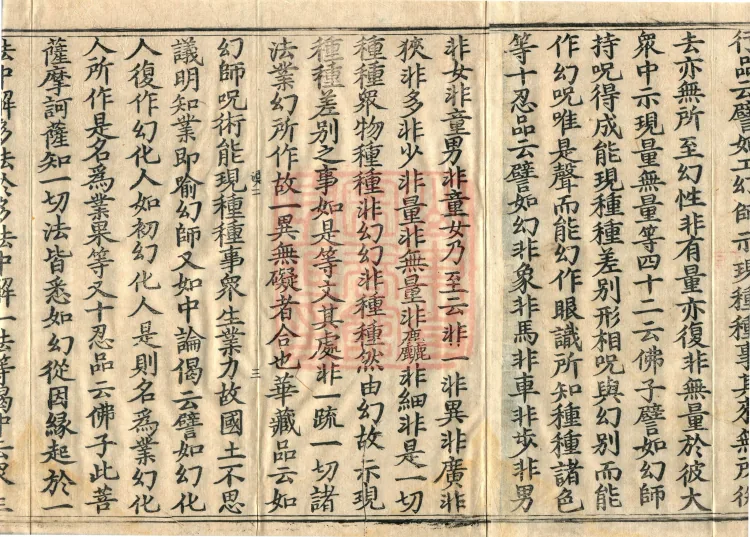 行品云譬如工幻師示現種種事其來無所從
去亦無所至幻性非有量亦復非無量於彼大
衆中示現量無量等四十二云佛子譬如幻師
持呪得成能現種種差別形相呪與幻別而能
作幻呪唯是聲而能幻作眼識所知種種諸色
等十忍品云譬如幻非象非馬非車非步非男
非女非童男非童女乃至云非一非異非廣非
狹非多非少非量非無量非麤非細非是一切
種種衆物種種非幻幻非種種然由幻故示現
種種差別之事如是等文其處非一疏一切諸
法業幻所作故一異無礙者合也華藏品云如
三
幻師呪術能現種種事衆生業力故國土不思
議明知業即喻幻師又如中論偈云譬如幻化
人復作幻化人如初幻化人是則名爲業幻化
人所作是名爲業果等又十忍品云佛子此菩
薩摩訶薩知一切法皆悉如幻從因緣起於一
法中解多法於多法中解一法等偈中云衆生